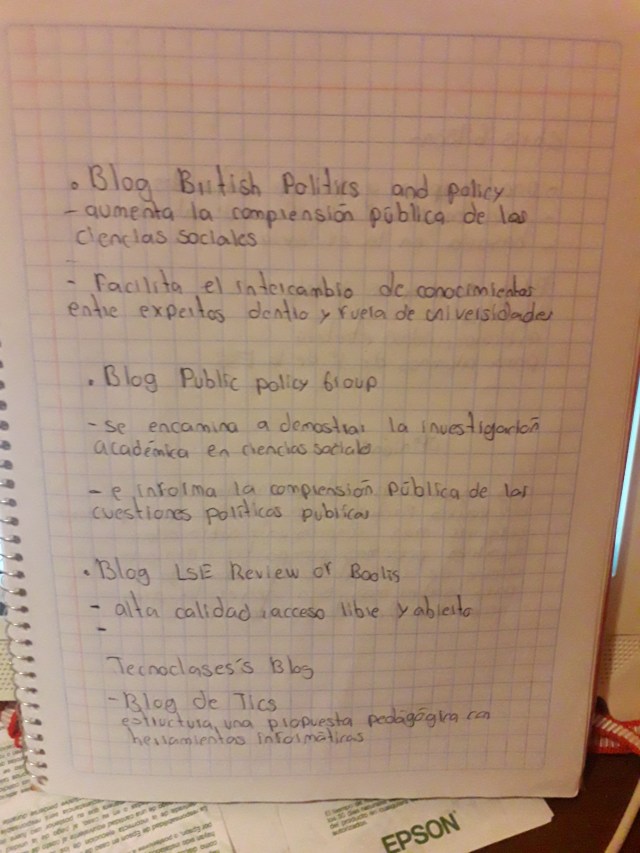 . Blog British Politics and policy
- aumenta la comprensión pública de las
ciencias sociales
- Facilita el intercambio de conocimientos
entre expertos dentro y fuera de universidades
. Blog Public policy Group
- se encamina a demostrar la investigación
académica en ciencias sociales
- e informa la comprensión pública de las
cuestiones políticas publicas
. Blog LSE Review of Books
- alta calidad, acceso libre y abierto
-
Tecnoclases's Blog
- Blog de Tics
estructura una propuesta pedagógica con
herramientas informáticas
EPSON